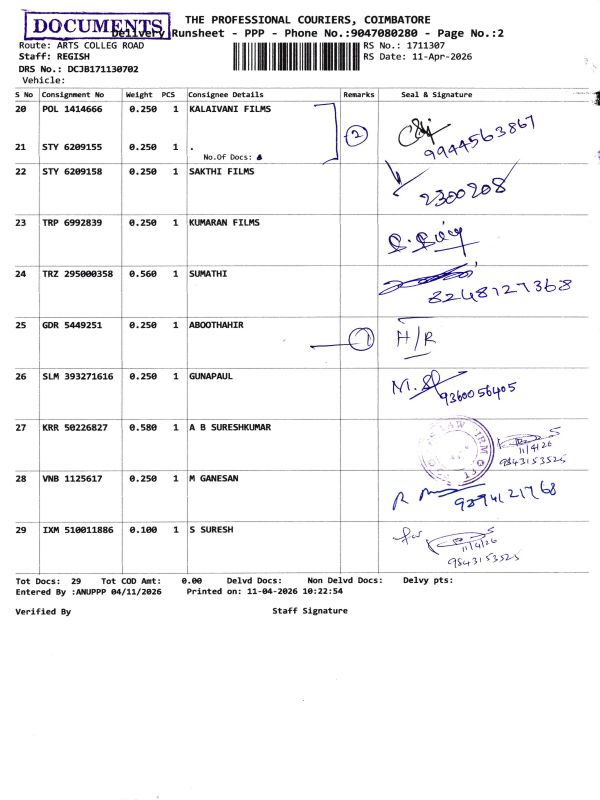 DOCUMENTS
THE PROFESSIONAL COURIERS, COIMBATORE
Delivery Runsheet - PPP - Phone No.:9047080280 - Page No.:2
Route: ARTS COLLEG ROAD
RS No.: 1711307
Staff: REGISH
RS Date: 11-Apr-2026
DRS No.: DCJB171130702
Vehicle:
S No Consignment No Weight PCS Consignee Details Remarks Seal & Signature
20 POL 1414666 0.250 1 KALAIVANI FILMS
2
21 STY 6209155 0.250 1 .
9944563867
No.Of Docs:
22 STY 6209158 0.250 1 SAKTHI FILMS
2300208
23 TRP 6992839 0.250 1 KUMARAN FILMS
24 TRZ 295000358 0.560 1 SUMATHI
8248127368
25 GDR 5449251 0.250 1 ABOOTHAHIR
1 H/R
26 SLM 393271616 0.250 1 GUNAPAUL
9360056405
27 KRR 50226827 0.580 1 A B SURESHKUMAR
LAW FIRM
11/4/26
9543153525
28 VNB 1125617 0.250 1 M GANESAN
9894121768
29 IXM 510011886 0.100 1 S SURESH
for
11/4/26
9543153525
Tot Docs: 29 Tot COD Amt: 0.00 Delvd Docs: Non Delvd Docs: Delvy pts:
Entered By :ANUPPP 04/11/2026 Printed on: 11-04-2026 10:22:54
Verified By Staff Signature